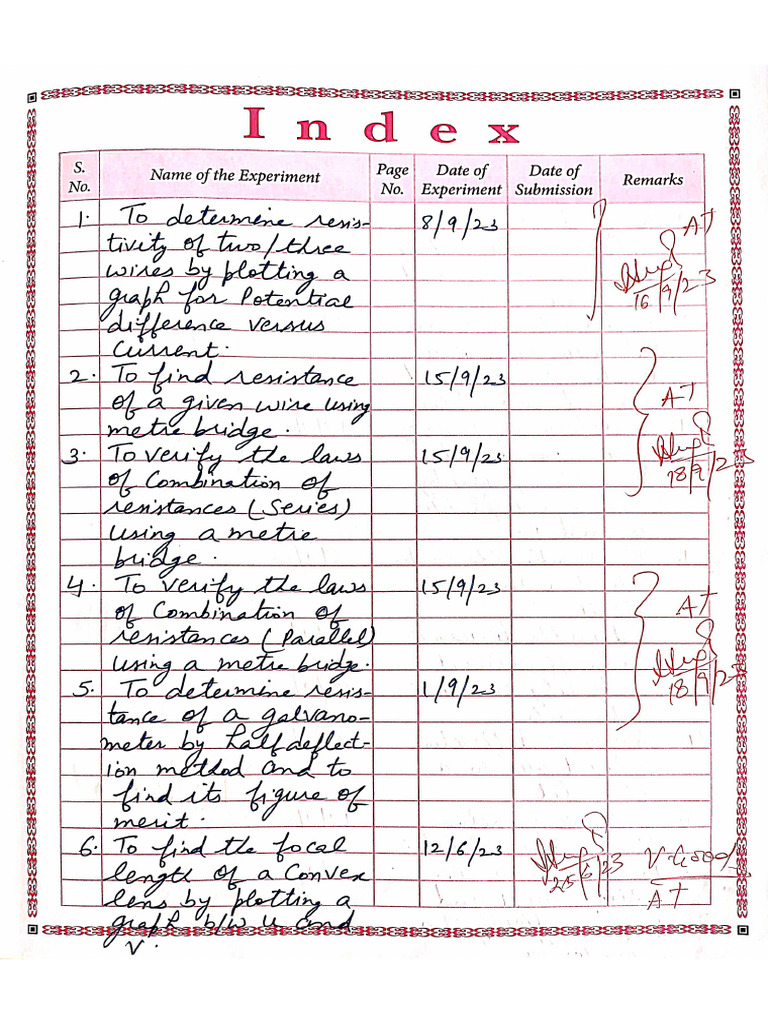 Index
S. No. Name of the Experiment Page No. Date of Experiment Date of Submission Remarks
1. To determine resis- 8/9/23
tivity of two/three AT
wires by plotting a
graph for Potential 16/9/23
difference versus
Current.
2. To find resistance 15/9/23
of a given wire using AT
metre bridge.
3. To verify the laws 15/9/23
of Combination of 18/9/23
resistances (Series)
using a metre
bridge.
4. To verify the laws 15/9/23
of Combination of AT
resistances (Parallel)
using a metre bridge.
5. To determine resis- 1/9/23 18/9/23
tance of a galvano-
meter by half deflect-
ion method and to
find its figure of
merit.
6. To find the focal 12/6/23 V. Good
length of a Convex 25/6/23
lens by plotting a AT
graph b/w u and
v.